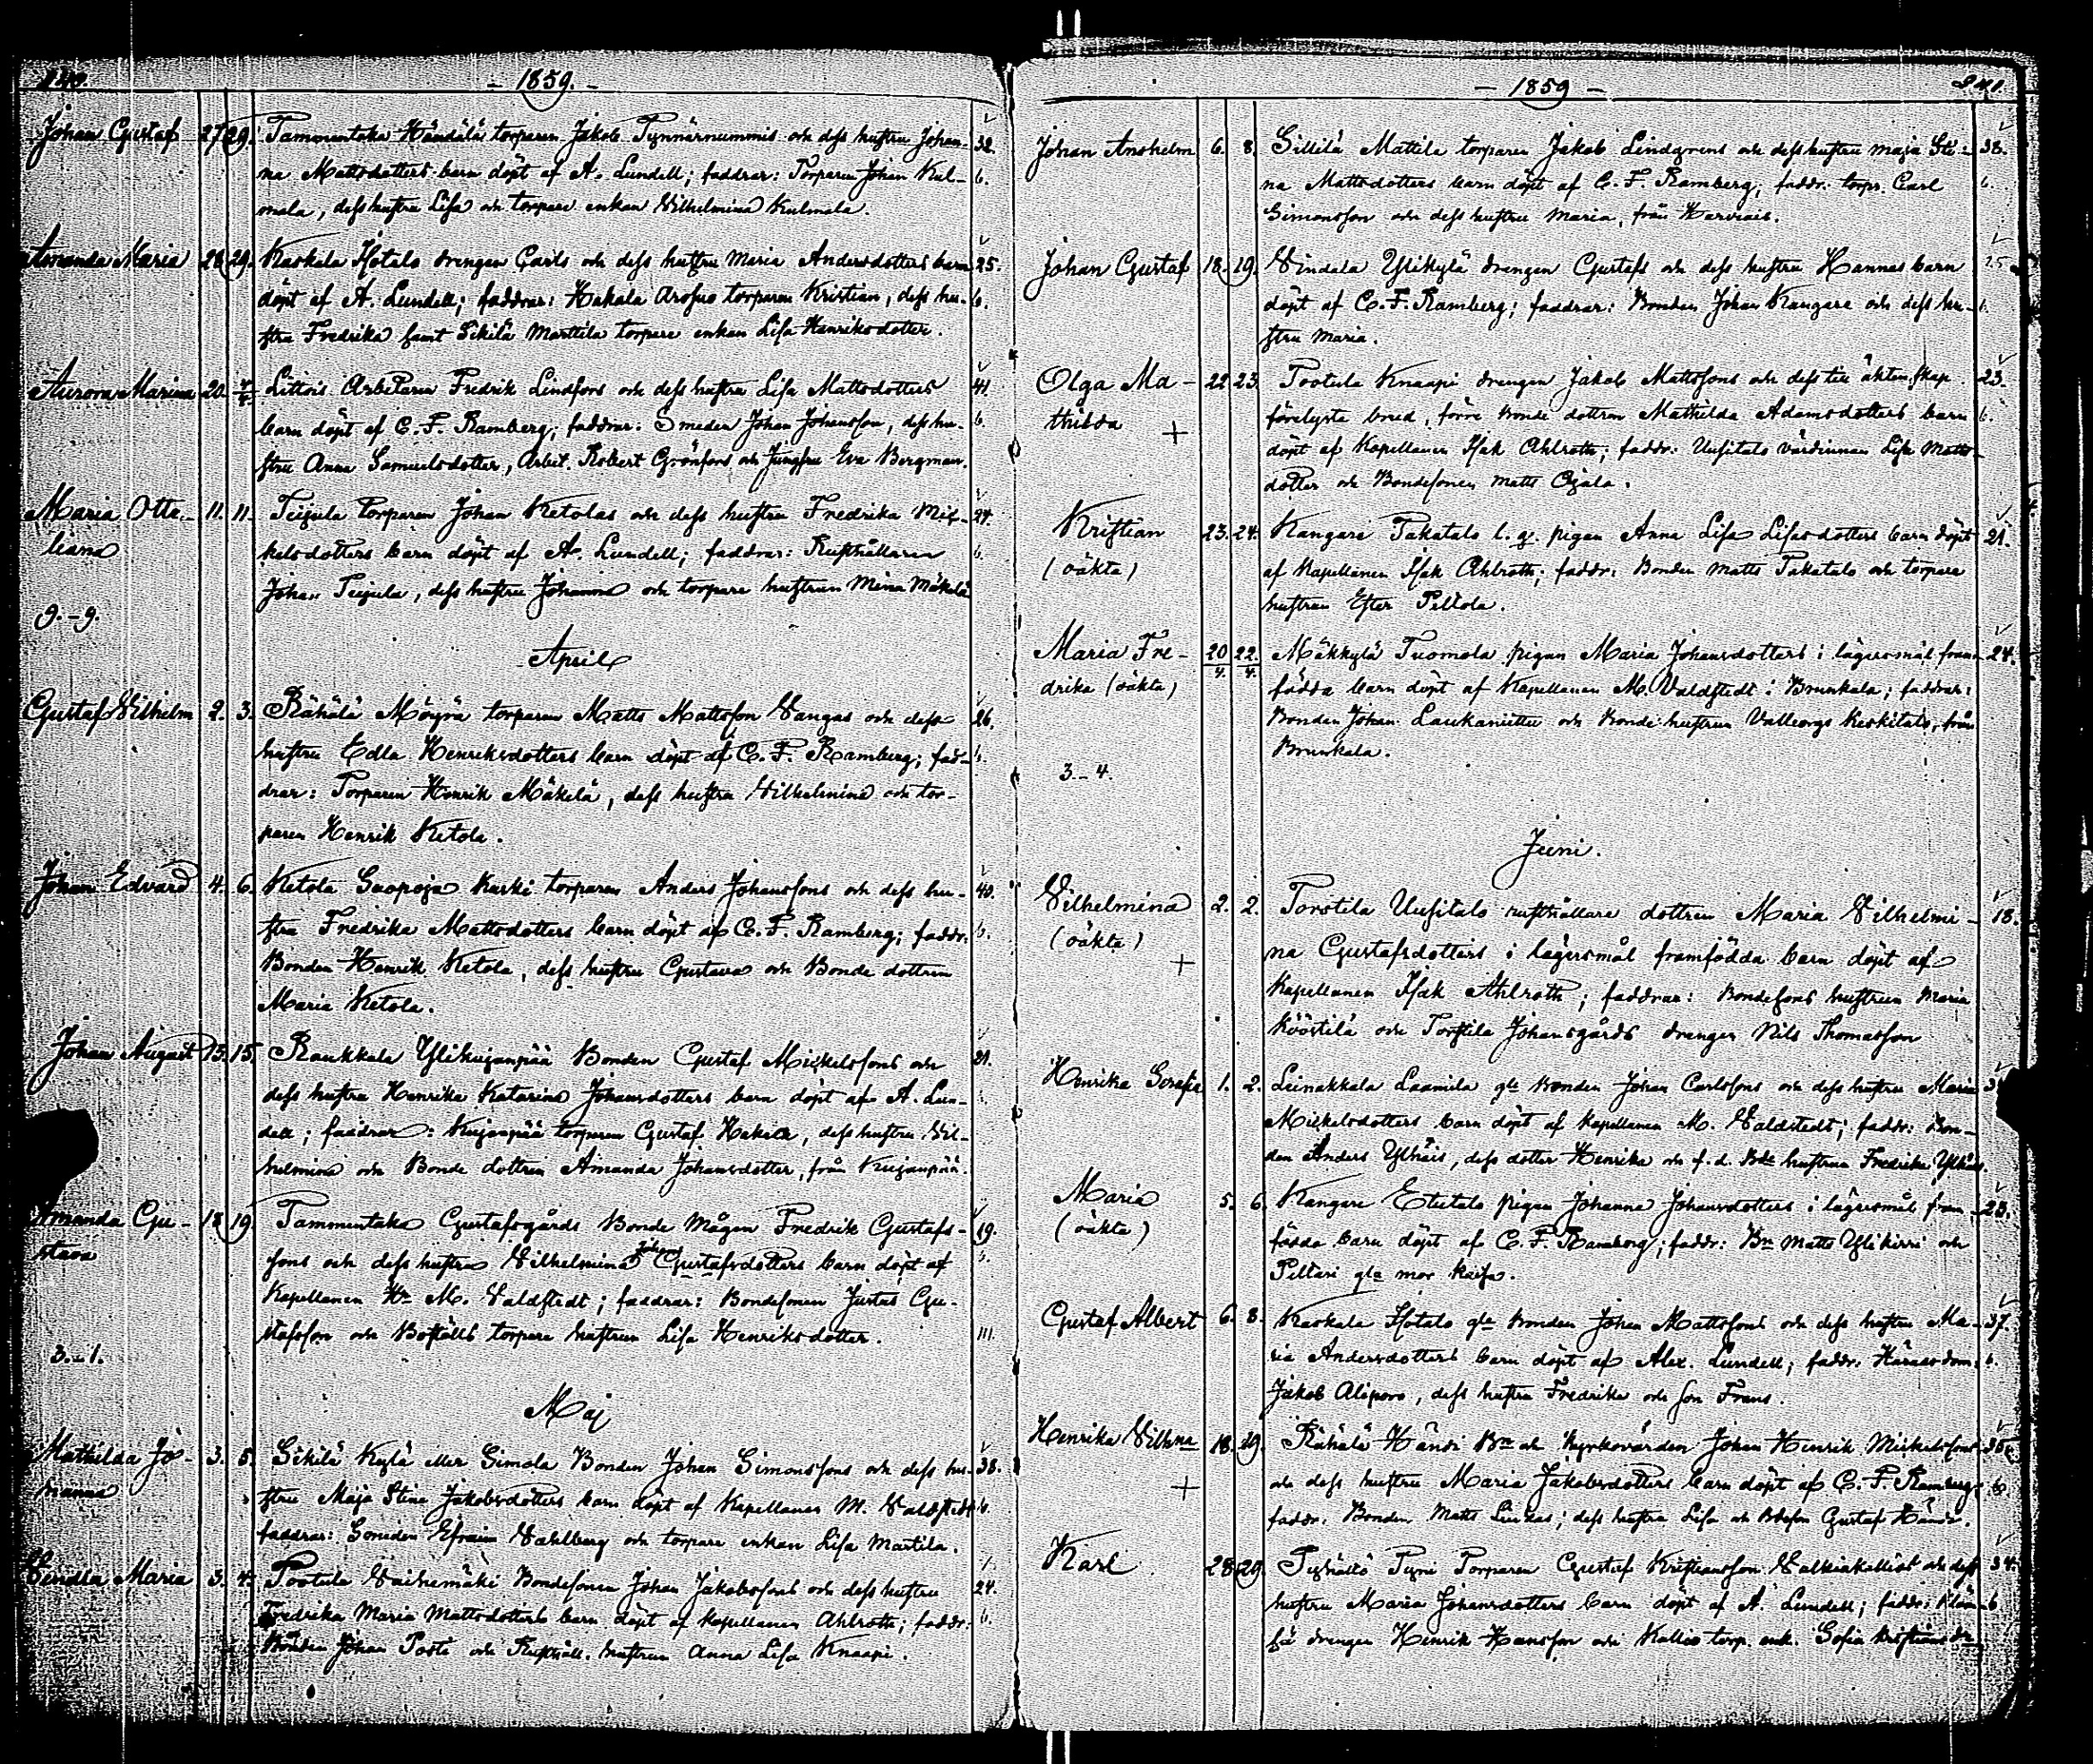 240.
- 1859. -
Johan Gustaf 27. 29. Tammentaka Händälä torparen Jakob Tynnärnummis och dess hustru Johan- 32.
na Mattsdotters barn döpt af A. Lundell; faddrar: Torparen Johan Kul- b.
mala, dess hustru Lisa och torpare enkan Vilhelmina Kulmala.
Amanda Maria 28. 29. Kaskala Isotalo drengen Carls och dess hustru Maria Andersdotters barn 25.
döpt af A. Lundell; faddrar: Hakala Arosuo torparen Kristian, dess hu- b.
stru Fredrika samt Sikilä Marttila torpare enkan Lisa Henriksdotter.
Aurora Marina 20. 4/4 Littois Arbetaren Fredrik Lindfors och dess hustru Lisa Mattsdotters 41.
barn döpt af C. F. Ramberg; faddrar: Smeden Johan Johansson, dess hu- b.
stru Anna Samuelsdotter, Arbet. Robert Grönfors och Jungfru Eva Bergman.
Maria Otta- 11. 11. Teijula torparen Johan Ketolas och dess hustru Fredrika Mic- 24.
liana kelsdotters barn döpt af A. Lundell; faddrar: Rusthållaren b.
Johan Teijula, dess hustru Johanna och torpare hustrun Mina Mäkelä
9. - 9.
April
Gustaf Vilhelm 2. 3. Rähälä Möyrä torparen Matts Mattsson Vangas och dess 26.
hustru Edla Henriksdotters barn döpt af C. F. Ramberg; fad- b.
drar: Torparen Henrik Mäkelä, dess hustru Vilhelmina och tor-
paren Henrik Ketola.
Johan Edvard 4. 6. Ketola Suopoja Karki torparen Anders Johanssons och dess hu- 40.
stru Fredrika Mattsdotters barn döpt af C. F. Ramberg; faddr: b.
Bonden Henrik Ketola, dess hustru Gustava och Bonde dottren
Maria Ketola.
Johan August 13. 15. Raukkala Ylikujanpää Bonden Gustaf Mickelssons och 21.
dess hustru Henrika Katarina Johansdotters barn döpt af A. Lun-
dell; faddrar: Kujanpää torparen Gustaf Hakala, dess hustru Vil-
helmina och Bonde dottren Amanda Johansdotter, från Kujanpää.
Amanda Gu- 18. 19. Tammentaka Gustafsgårds Bonde mågen Fredrik Gustafs- 19.
stava sons och dess hustru Vilhelmina Johans Gustafsdotters barn döpt af b.
Kapellanen Hr M. Valdstedt; faddrar: Bondesonen Justus Gu-
stafsson och Boställs torpare hustrun Lisa Henriksdotter. III.
3. - 1.
Maj
Mathilda Jo- 3. 5. Sikilä Kylä eller Simola Bonden Johan Simonssons och dess hu- 38.
hanna stru Maja Stina Jakobsdotters barn döpt af Kapellanen M. Valdstedt b.
faddrar: Smeden Efraim Wahlberg och torpare enkan Lisa Martila.
Vendla Maria 3. 4. Tootula Vaihemäki Bondesonen Johan Jakobssons och dess hustru 24.
Fredrika Maria Mattsdotters barn döpt af Kapellanen Ahlroth; faddr: b.
Bonden Johan Posti och Rusthåll. hustrun Anna Lisa Knaapi.
- 1859 -
241.
Johan Anshelm 6. 8. Sillilä Mattila torparen Jakob Lindgrens och dess hustru Maja Sti- 38.
na Mattsdotters barn döpt af C. F. Ramberg; faddr: torpr. Carl b.
Simonsson och dess hustru Maria, från Harvais.
Johan Gustaf 18. 19. Vindala Ylikylä drengen Gustafs och dess hustru Hannas barn 25
döpt af C. F. Ramberg; faddrar: Bonden Johan Kangare och dess hu- b.
stru Maria.
Olga Ma- 22. 23. Tootula Knaapi drengen Jakob Mattssons och dess till äktenskap 23.
thilda + förelyste brud, förre Bonde dottren Mathilda Adamsdotters barn b.
döpt af Kapellanen Isak Ahlroth; faddr: Uusitalo värdinnan Lisa Matts-
dotter och Bondesonen Matts Ojala.
Kristian 23. 24. Kangare Takatalo l. g. pigan Anna Lisa Lisasdotters barn döpt 21.
(oäkta) af Kapellanen Isak Ahlroth; faddr: Bonden Matts Takatalo och torpare
hustrun Ester Peltola.
Maria Fre- 20/4. 22/4. Mäkkylä Tuomola pigan Maria Johansdotters i lägersmål fram- 24.
drika (oäkta) födda barn döpt af Kapellanen M. Valdstedt i Brunkala; faddrar:
Bonden Johan Laukanittu och Bonde hustrun Valborgs Keskitalo, från
Brunkala.
3. - 4.
Juni.
Vilhelmina 2. 2. Torstila Uusitalo rusthållare dottren Maria Vilhelmi- 18.
(oäkta) na Gustafsdotters i lägersmål framfödda barn döpt af
+ Kapellanen Isak Ahlroth; faddrar: Bondesons hustrun Maria
Köörtilä och Torstila Johansgårds drengen Nils Thomasson
Henrika Serafia 1. 2. Leinakkala Laamila gle Bonden Johan Carlssons och dess hustru Maria 3
Mickelsdotters barn döpt af Kapellanen M. Valdstedt; faddr: Bon-
den Anders Ylhäis, dess dotter Henrika och f. d. Bde hustrun Fredrika Ylhäis.
Maria 5. 6. Kangare Etutalo pigan Johanna Johansdotters i lägersmål fram- 28.
(oäkta) födda barn döpt af C. F. Ramberg; faddr: Bn Matts Ylikirri och
Peltari gla mor Kaisa.
Gustaf Albert 6. 8. Kaskala Isotalo gle Bonden Johan Mattssons och dess hustru Ma- 37.
ria Andersdotters barn döpt af Alex. Lundell; faddr. Häradsdom: b.
Jakob Alisporo, dess hustru Fredrika och son Frans.
Henrika Vilhna 18. 19. Rähälä Händi Bn och Kyrkovärden Johan Henrik Mickelssons 35.
+ och dess hustru Maria Jakobsdotters barn döpt af C. F. Ramberg; b
faddr. Bonden Matts Liuxas; dess hustru Lisa och Bdeson Gustaf Händi.
Karl 28. 29. Pyhältö Pyni Torparen Gustaf Kristiansson Valkiakallios och dess 34.
hustru Maria Johansdotters barn döpt af A. Lundell; faddr: b
bä drengen Henrik Hansson och Kallio torp. enk. Sofia Kristiansdr